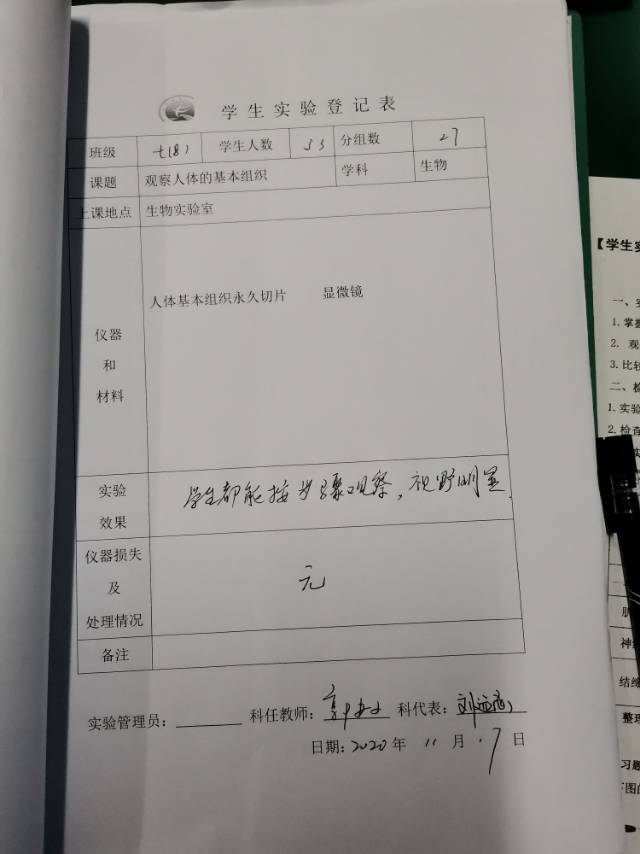 学生实验登记表
班级 七(8) 学生人数 53 分组数 27
课题 观察人体的基本组织 学科 生物
上课地点 生物实验室
仪器
和
材料
人体基本组织永久切片 显微镜
实验
效果
学生都能按步骤观察,视野明显.
仪器损失
及
处理情况
无
备注
实验管理员: 科任教师: 科代表:
日期:2020年 11月 17日
【学生实
1.掌握
2. 观
3.比较
二、检
1.实验
2.检查
神经
结缔
整理
习题
下图的